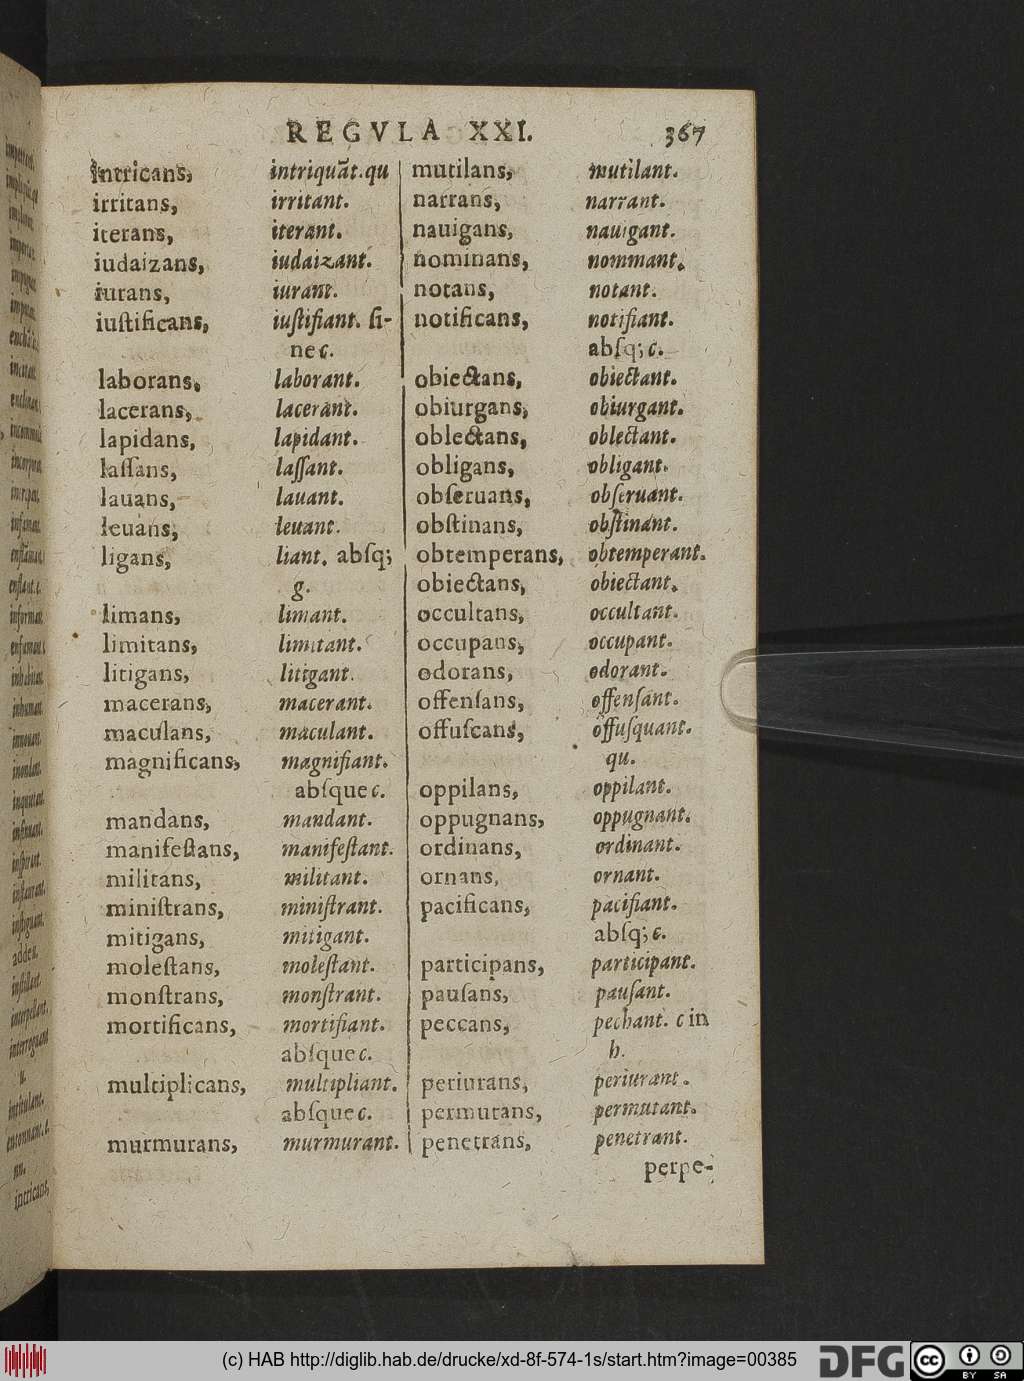 REGVLA XXI. 367
intricans, intriquãt. qu
irritans, irritant.
iterans, iterant.
iudaizans, iudaizant.
iurans, iurant.
iuſtificans, iuſtifiant. ſi-
ne c.
laborans, laborant.
lacerans, lacerant.
lapidans, lapidant.
laſſans, laſſant.
lauans, lauant.
leuans, leuant.
ligans, liant. abſq;
g.
limans, limant.
limitans, limitant.
litigans, litigant.
macerans, macerant.
maculans, maculant.
magnificans, magnifiant.
abſque c.
mandans, mandant.
manifeſtans, manifeſtant.
militans, militant.
miniſtrans, miniſtrant.
mitigans, mitigant.
moleſtans, moleſtant.
monſtrans, monſtrant.
mortificans, mortifiant.
abſque c.
multiplicans, multipliant.
abſque c.
murmurans, murmurant.
mutilans, mutilant.
narrans, narrant.
nauigans, nauigant.
nominans, nommant.
notans, notant.
notificans, notifiant.
abſq; c.
obiectans, obiectant.
obiurgans, obiurgant.
oblectans, oblectant.
obligans, obligant.
obſeruans, obſeruant.
obſtinans, obſtinant.
obtemperans, obtemperant.
obiectans, obiectant.
occultans, occultant.
occupans, occupant.
odorans, odorant.
offenſans, offenſant.
offuſcans, offuſquant.
qu.
oppilans, oppilant.
oppugnans, oppugnant.
ordinans, ordinant.
ornans, ornant.
pacificans, pacifiant.
abſq; c.
participans, participant.
pauſans, pauſant.
peccans, pechant. c in
h.
periurans, periurant.
permutans, permutant.
penetrans, penetrant.
perpe-
(c) HAB http://diglib.hab.de/drucke/xd-8f-574-1s/start.htm?image=00385
DFG
cc BY SA